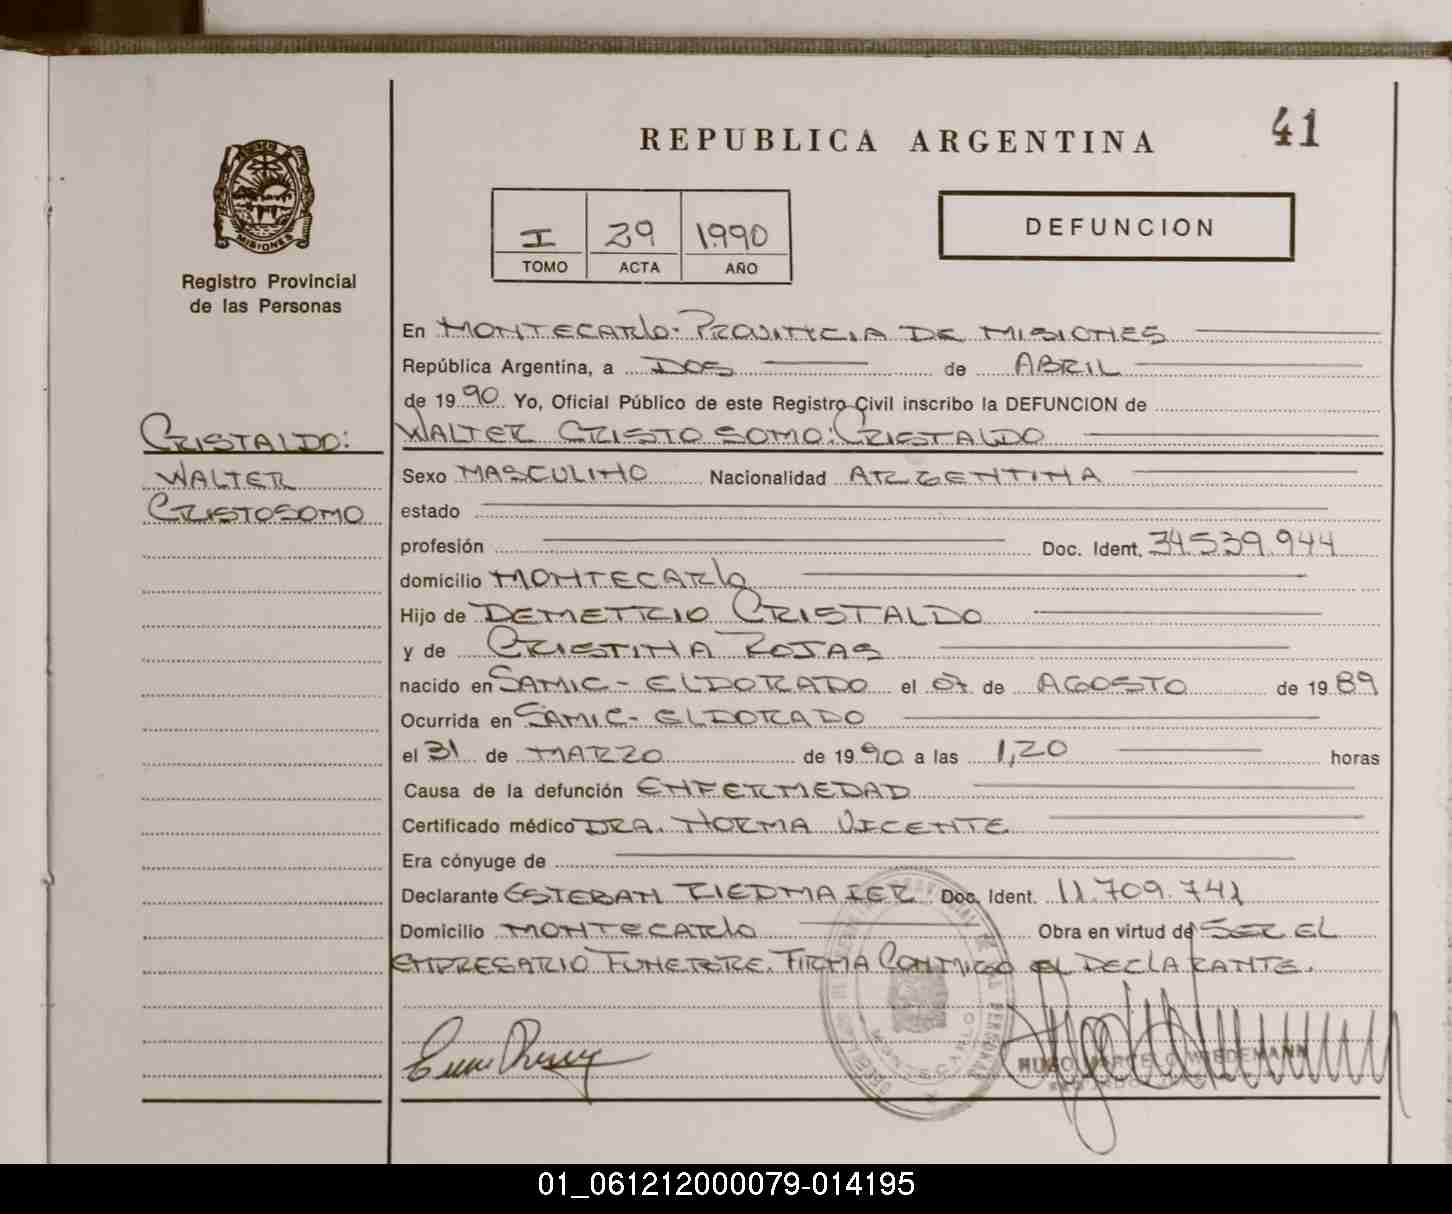 41
REPUBLICA ARGENTINA
MISIONES
Registro Provincial
de las Personas
I 39 1.990
TOMO ACTA AÑO
DEFUNCION
En MONTECARLO: PROVINCIA DE MISIONES
República Argentina, a DOS de ABRIL
de 1990 Yo, Oficial Público de este Registro Civil inscribo la DEFUNCION de
CRISTALDO:
WALTER
CRISTOSOMO
WALTER CRISTOSOMO: CRISTALDO
Sexo MASCULINO Nacionalidad ARGENTINA
estado
profesión Doc. Ident. 34.539.944
domicilio MONTECARLO
Hijo de DEMETRIO CRISTALDO
y de CRISTINA ROJAS
nacido en SAMIC - ELDORADO el 07 de AGOSTO de 1989
Ocurrida en SAMIC - ELDORADO
el 31 de MARZO de 1990 a las 1,20 horas
Causa de la defunción ENFERMEDAD
Certificado médico DRA. NORMA VICENTE
Era cónyuge de
Declarante ESTEBAN RIEDMAIER Doc. Ident. 11.709.741
Domicilio MONTECARLO Obra en virtud de SER EL
EMPRESARIO FUNEBRE. FIRMA CONMIGO EL DECLARANTE.
HUGO MARCELO WIEDEMANN
01_061212000079-014195